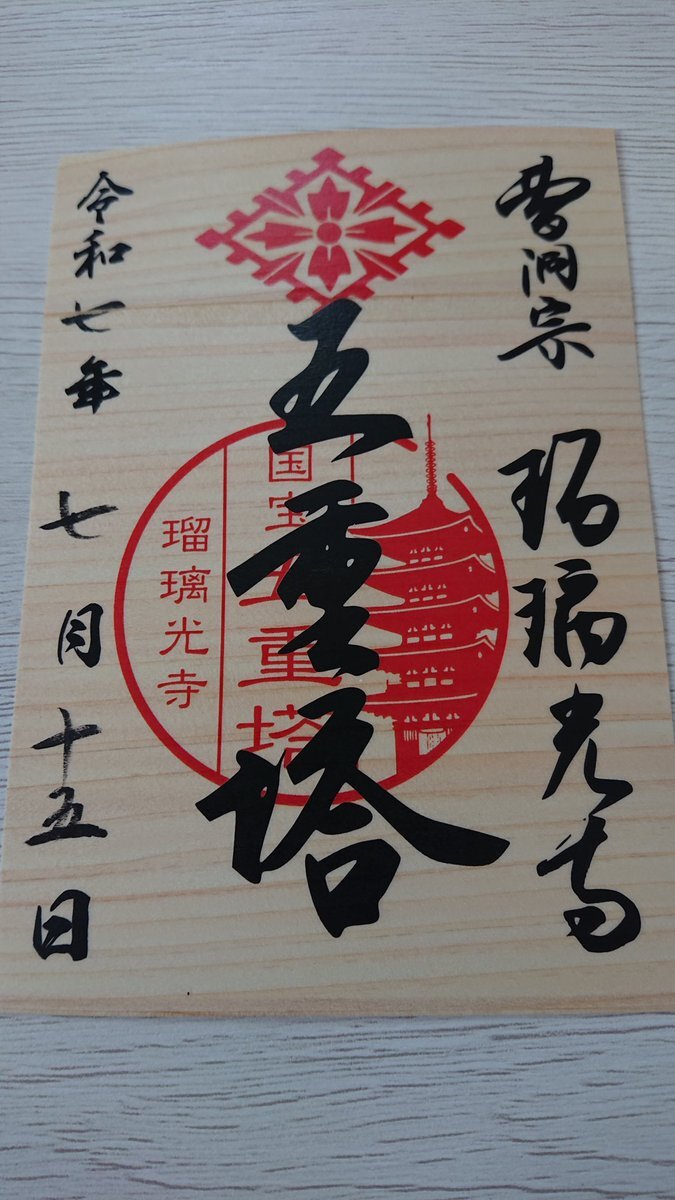 曹洞宗 瑠璃光寺
五重塔
国宝五重塔
瑠璃光寺
令和七年 七月十五日